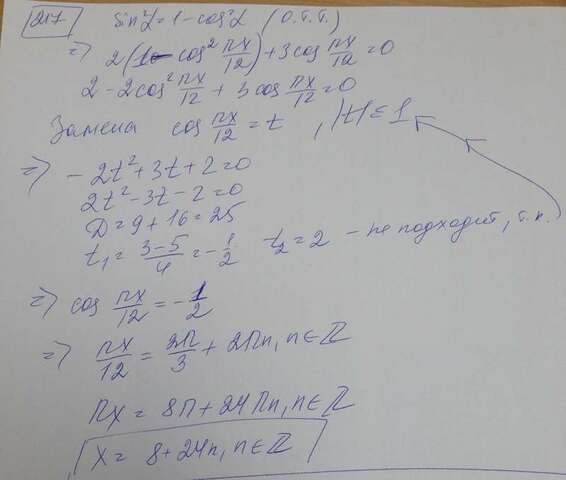 217 sin²α = 1 - cos²α (О.Т.Т.)
=> 2(1 - cos² πx/12) + 3cos πx/12 = 0
2 - 2cos² πx/12 + 3cos πx/12 = 0
Замена cos πx/12 = t, |t| ≤ 1
=> -2t² + 3t + 2 = 0
2t² - 3t - 2 = 0
D = 9 + 16 = 25
t₁ = (3-5)/4 = -1/2 t₂ = 2 - не подходит, т.к.
=> cos πx/12 = -1/2
=> πx/12 = 2π/3 + 2πn, n∈ℤ
πx = 8π + 24πn, n∈ℤ
x = 8 + 24n, n∈ℤ